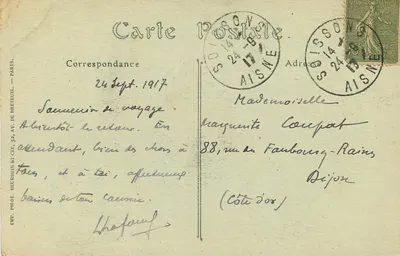 Carte Postale
Correspondance
Adresse
SOISSONS
14
24-9
17
AISNE
SOISSONS
14
24-9
17
AISNE
24 Sept. 1917
Souvenir de voyage.
A bientôt le retour. En
attendant, bien des choses à
tous, et à toi, affectueux
baisers de ton cousin.
Mademoiselle
Marguerite Coupat
88, rue du Faubourg-Raines
Dijon
(Côte d'or)